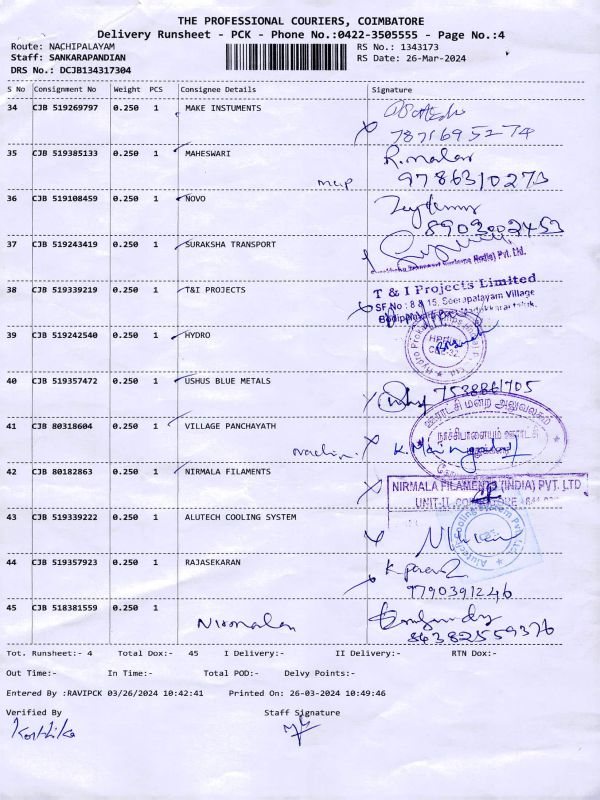 THE PROFESSIONAL COURIERS, COIMBATORE
Delivery Runsheet - PCK - Phone No.:0422-3505555 - Page No.:4
Route: NACHIPALAYAM RS No.: 1343173
Staff: SANKARAPANDIAN RS Date: 26-Mar-2024
DRS No.: DCJB134317304
S No Consignment No Weight PCS Consignee Details Signature
34 CJB 519269797 0.250 1 MAKE INSTUMENTS
7871695274
35 CJB 519385133 0.250 1 MAHESWARI R. malar
9786310273
36 CJB 519108459 0.250 1 NOVO
8903002453
37 CJB 519243419 0.250 1 SURAKSHA TRANSPORT
(India) Pvt. Ltd.
38 CJB 519339219 0.250 1 T&I PROJECTS T & I Projects Limited
SF.No : 8 & 15, Seerapalayam Village
39 CJB 519242540 0.250 1 HYDRO
40 CJB 519357472 0.250 1 USHUS BLUE METALS 7538861705
ஊராட்சி மன்ற அலுவலகம்
41 CJB 80318604 0.250 1 VILLAGE PANCHAYATH
நாச்சிபாளையம் ஊராட்சி
42 CJB 80182863 0.250 1 NIRMALA FILAMENTS NIRMALA FILAMENTS (INDIA) PVT. LTD
UNIT-II,
43 CJB 519339222 0.250 1 ALUTECH COOLING SYSTEM Alutech Cooling System Pvt. Ltd.
44 CJB 519357923 0.250 1 RAJASEKARAN
9790391246
45 CJB 518381559 0.250 1
Nirmalan
84382559376
Tot. Runsheet:- 4 Total Dox:- 45 I Delivery:- II Delivery:- RTN Dox:-
Out Time:- In Time:- Total POD:- Delvy Points:-
Entered By :RAVIPCK 03/26/2024 10:42:41 Printed On: 26-03-2024 10:49:46
Verified By Staff Signature
Karthika